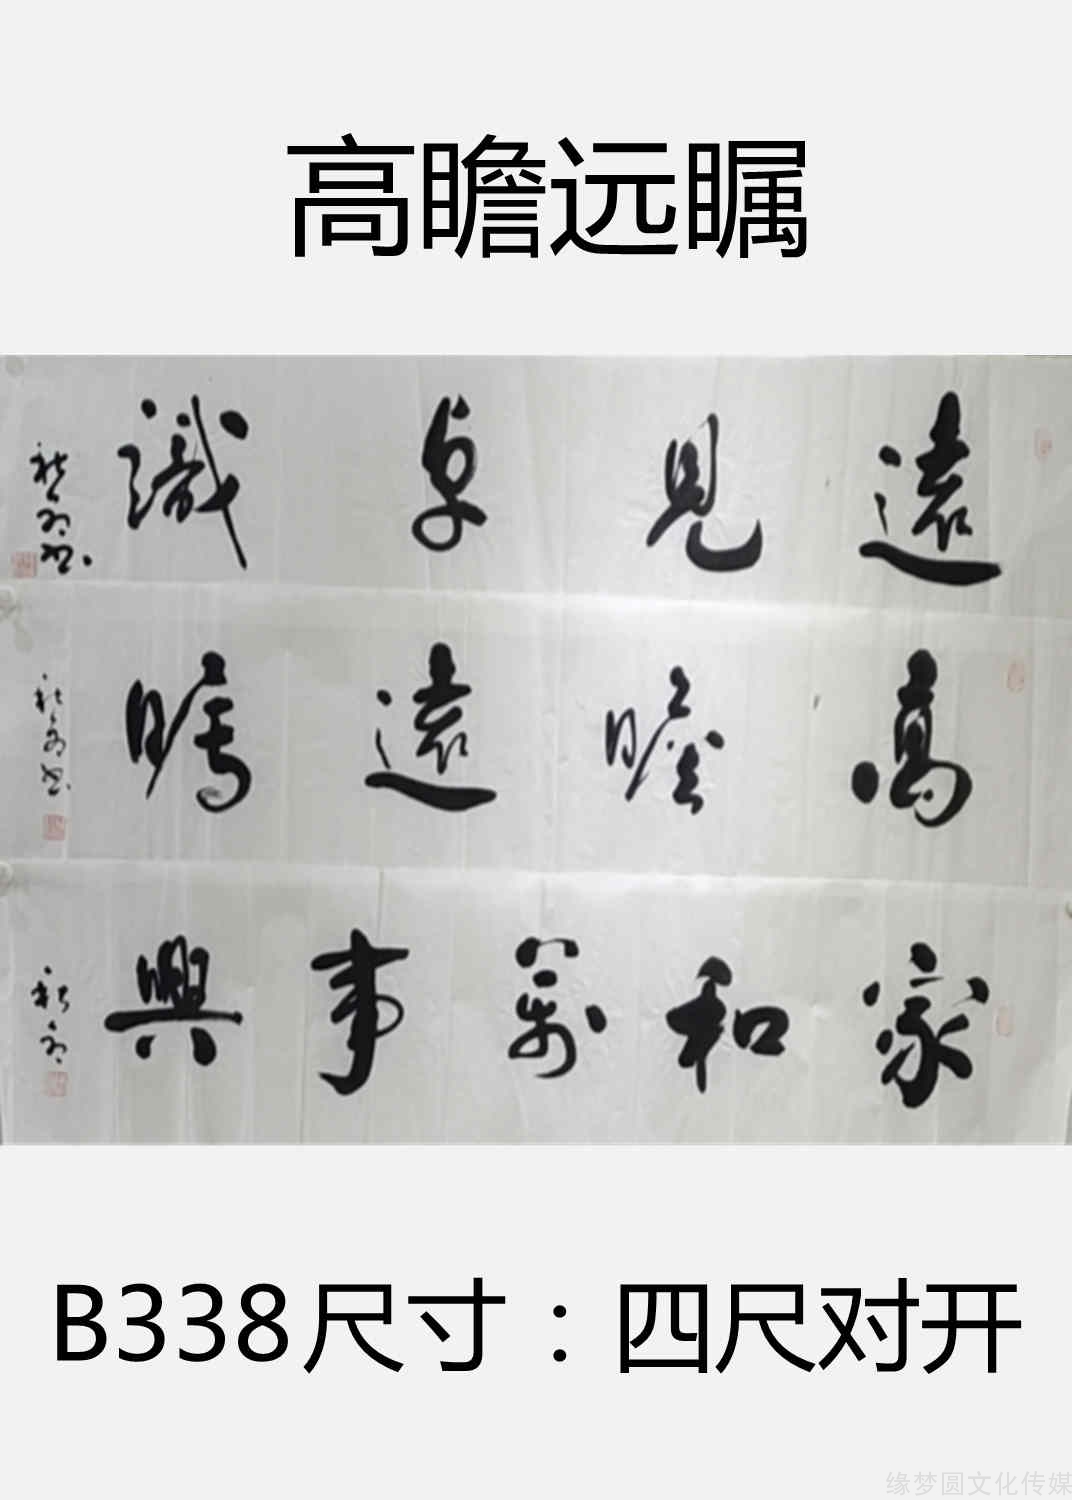 高瞻远瞩
遠見卓識
高瞻遠矚
家和萬事興
B338尺寸：四尺对开
缘梦圆文化传媒